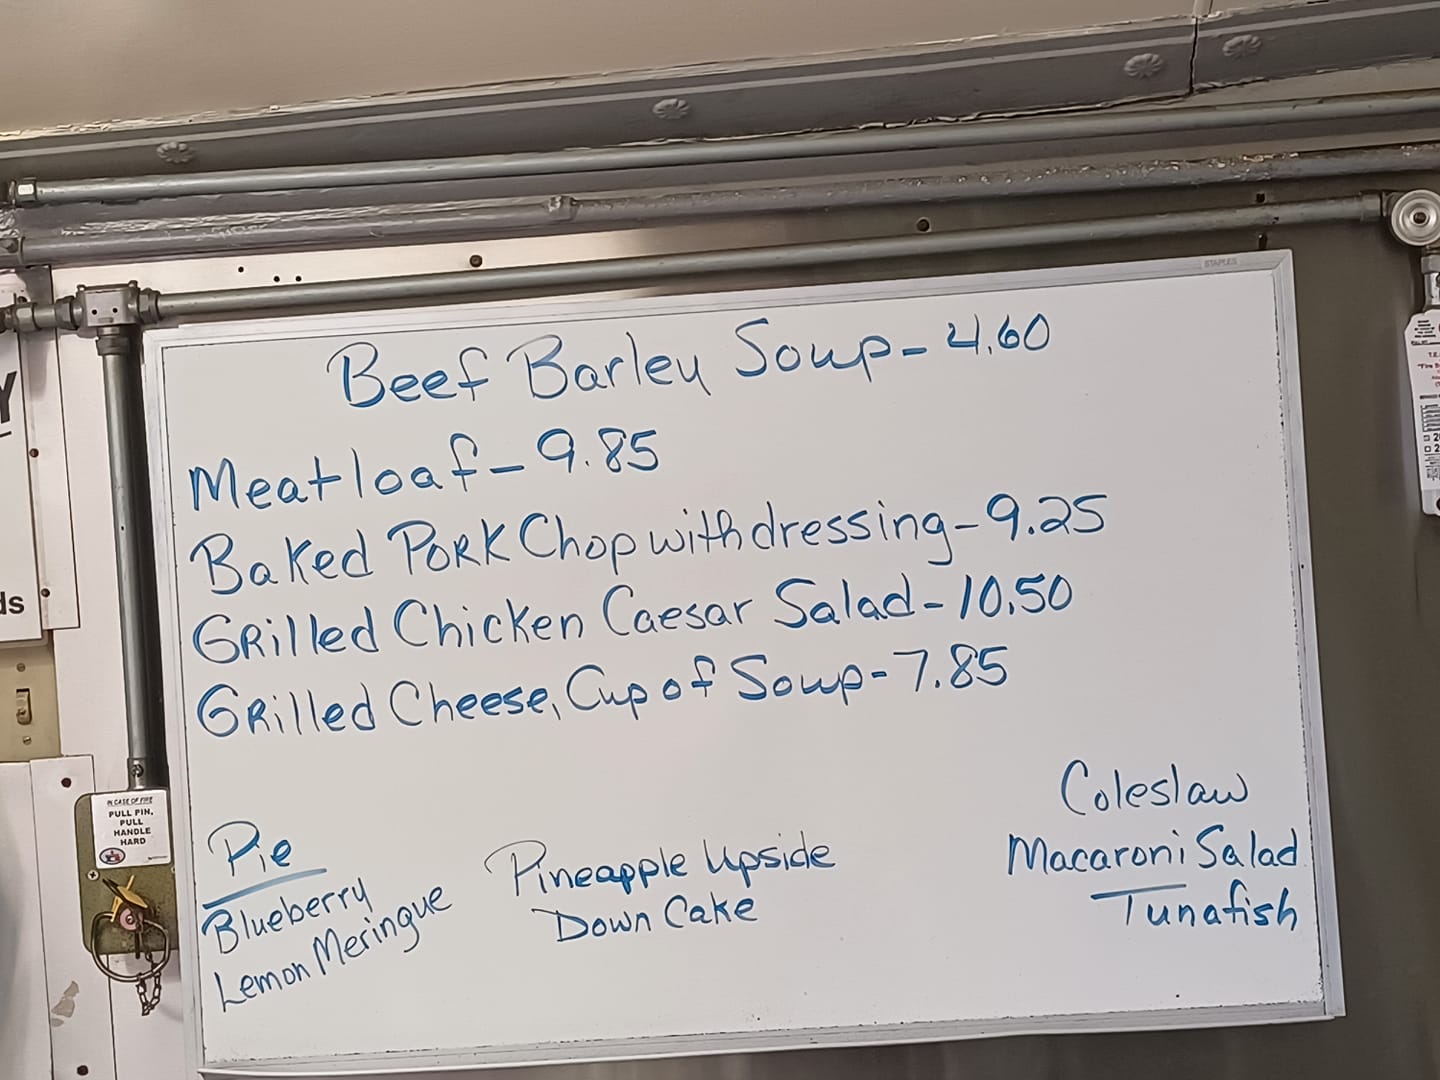 STAPLES
Beef Barley Soup - 4.60
Meatloaf - 9.85
Baked Pork Chop with dressing - 9.25
Grilled Chicken Caesar Salad - 10.50
Grilled Cheese, Cup of Soup - 7.85
Pie
Blueberry
Lemon Meringue
Pineapple Upside
Down Cake
Coleslaw
Macaroni Salad
Tunafish
IN CASE OF FIRE
PULL PIN.
PULL
HANDLE
HARD
Y
ds